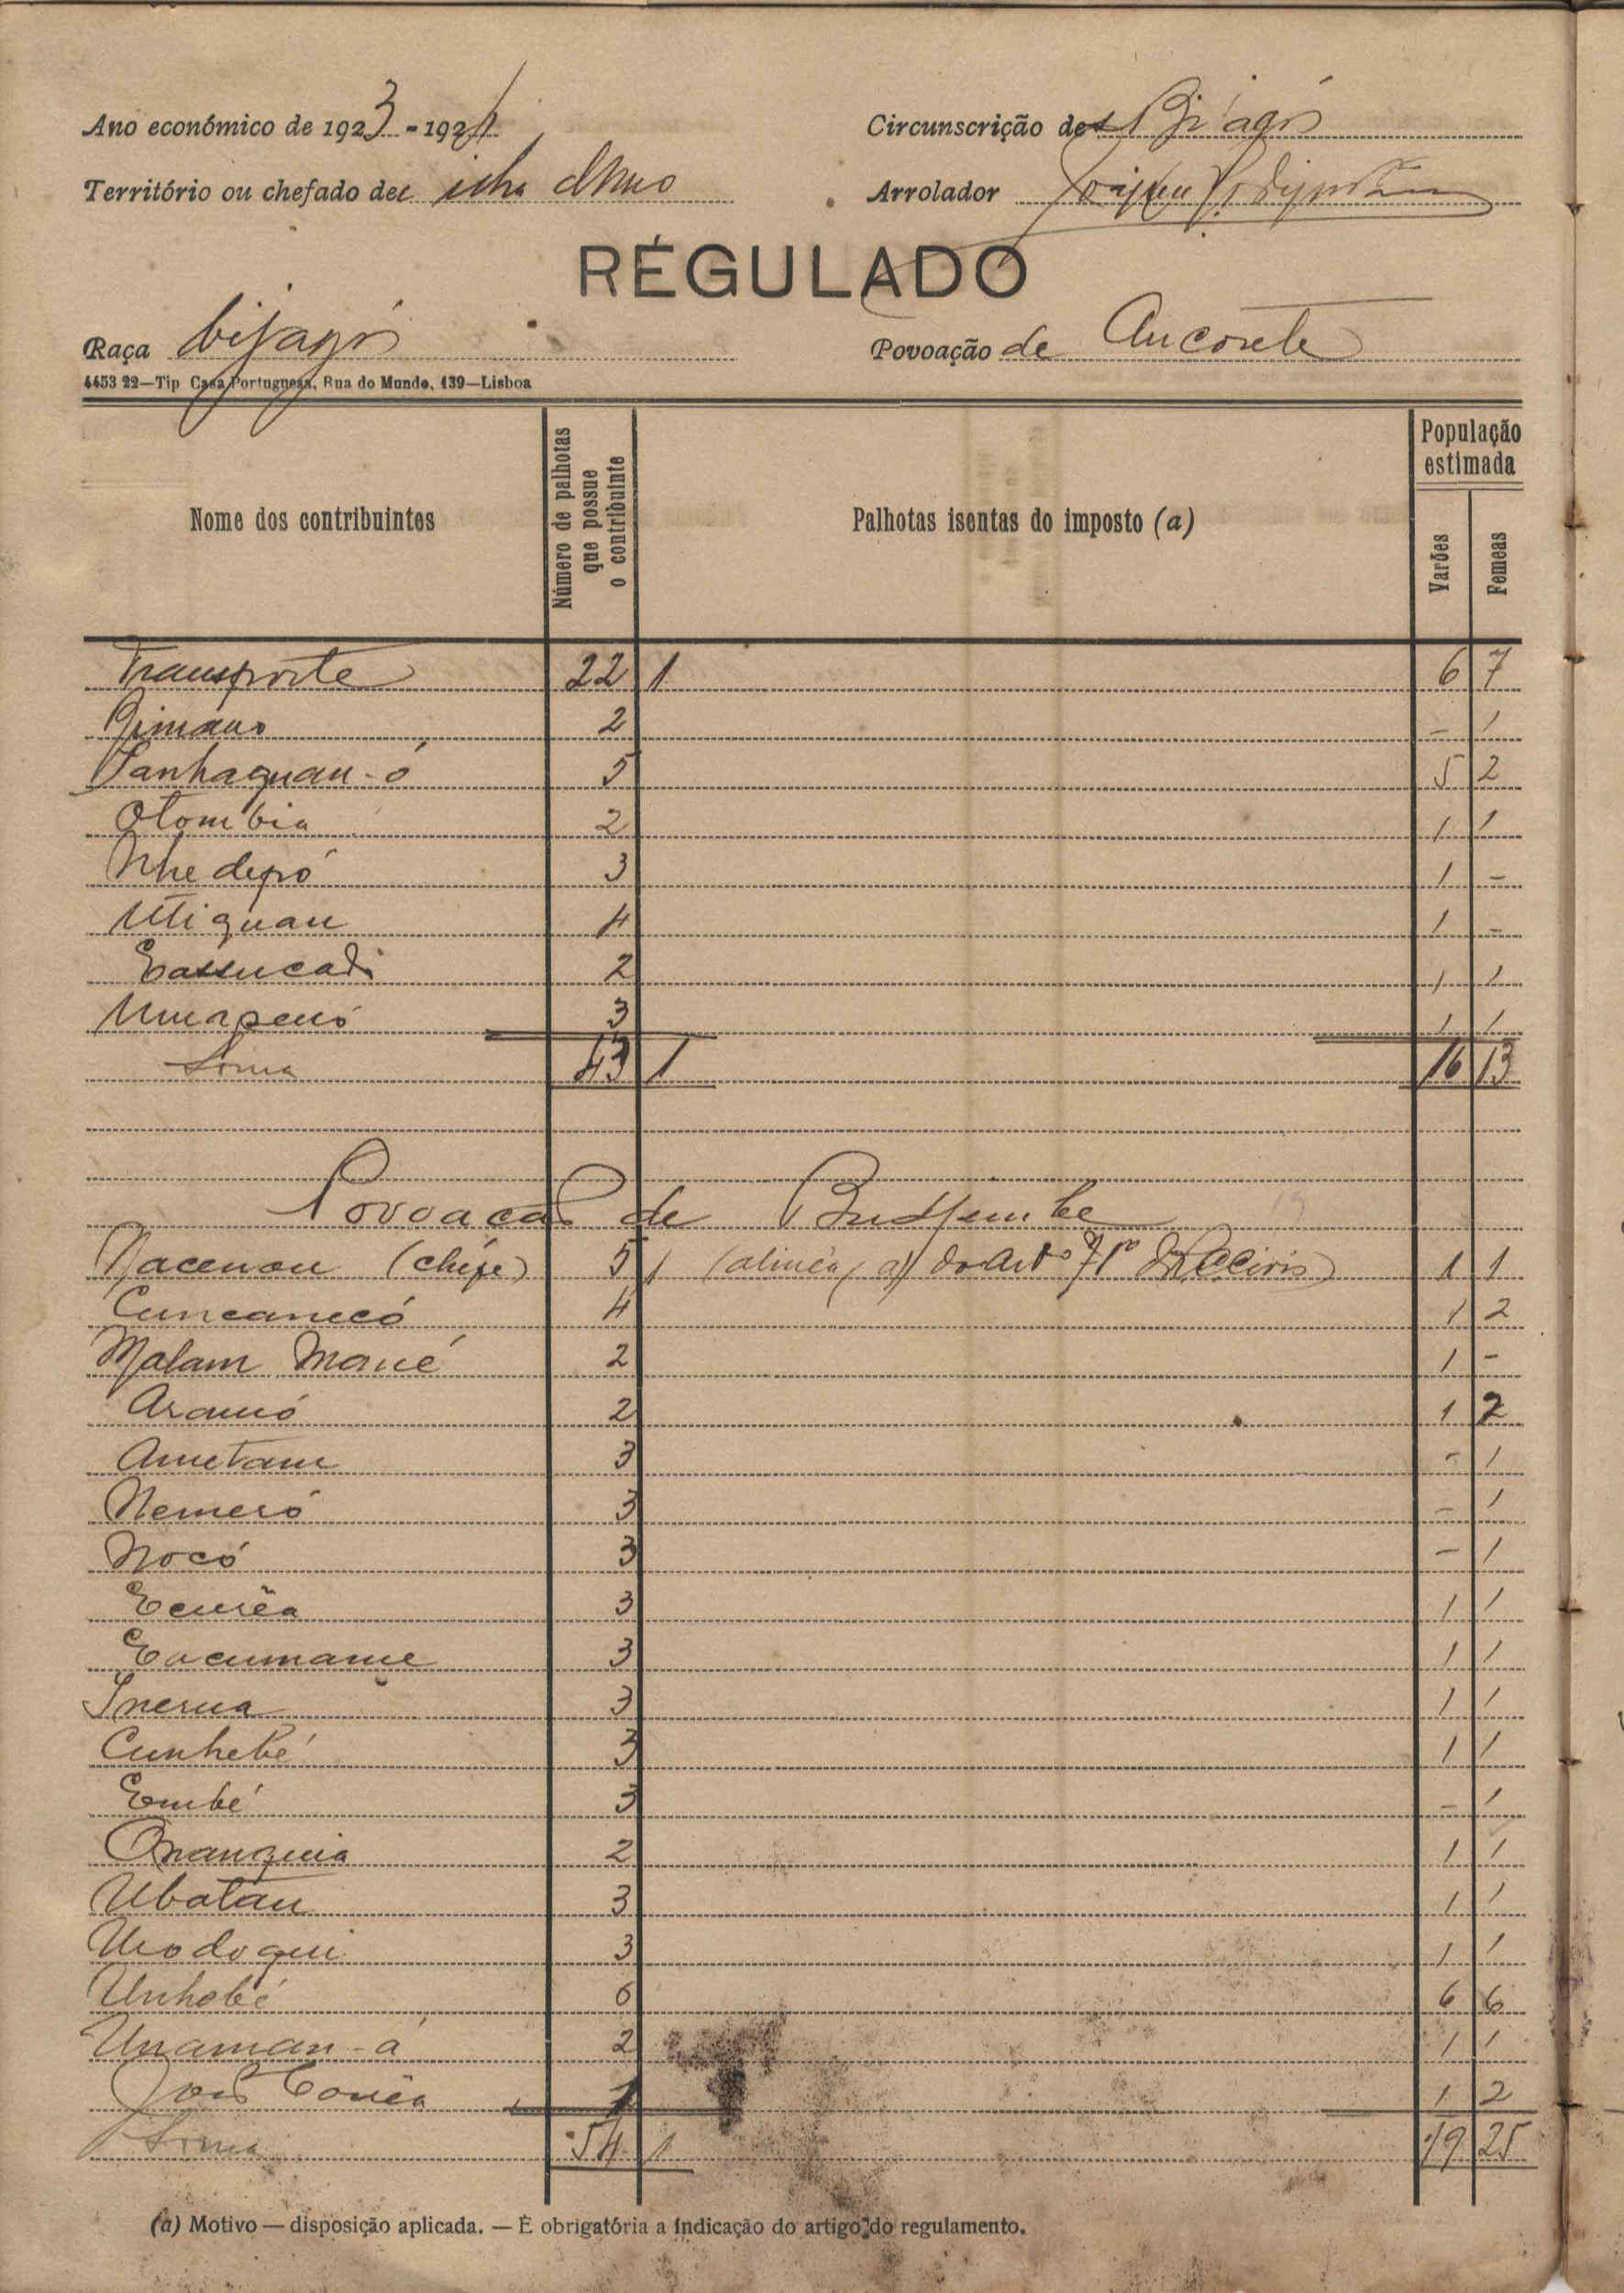 Ano económico de 1923-1924 Circunscrição de Bijagós
Território ou chefado de ilha Arrolador
RÉGULADO
Raça bijagós Povoação de Ancorete
4453 22—Tip Casa Portuguesa, Rua do Mundo, 139—Lisboa
Nome dos contribuintes Número de palhotas que possue o contribuinte Palhotas isentas do imposto (a) População estimada Varões Femeas
Transporte 22 1 6 7
Jimano 2 - 1
Tanhaguan-ó 5 5 2
Otombia 2 1 1
Nhe depó 3 1 -
Utiguan 4 1 -
Eassucadi 2 1 1
Umapenó 3 1 1
Soma 43 1 16 13
Povoacão de
Nacenou (chefe) 5 1 (alinea a) do arto 71º 1 1
Cuncanecó 4 1 2
Malam Mané 2 1 -
Aramó 2 1 2
Ametam 3 - 1
Nemeró 3 - 1
Nocó 3 - 1
Ecurêa 3 1 1
Eacumame 3 1 1
Inerua 3 1 1
Cunhebé 3 1 1
Embé 3 - 1
Onanquia 2 1 1
Ubatan 3 1 1
Urodoqui 3 1 1
Unhobé 6 6 6
Unaman-á 2 1 1
José Corrêa 1 1 2
Soma 54 1 19 25
(a) Motivo — disposição aplicada. — É obrigatória a indicação do artigo do regulamento.